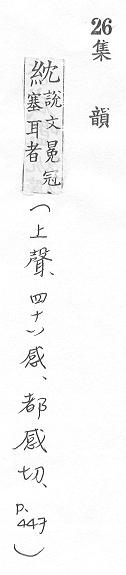 26集韻
紞說文冕冠
塞耳者
(上聲、四十八感、都感切、p.447)